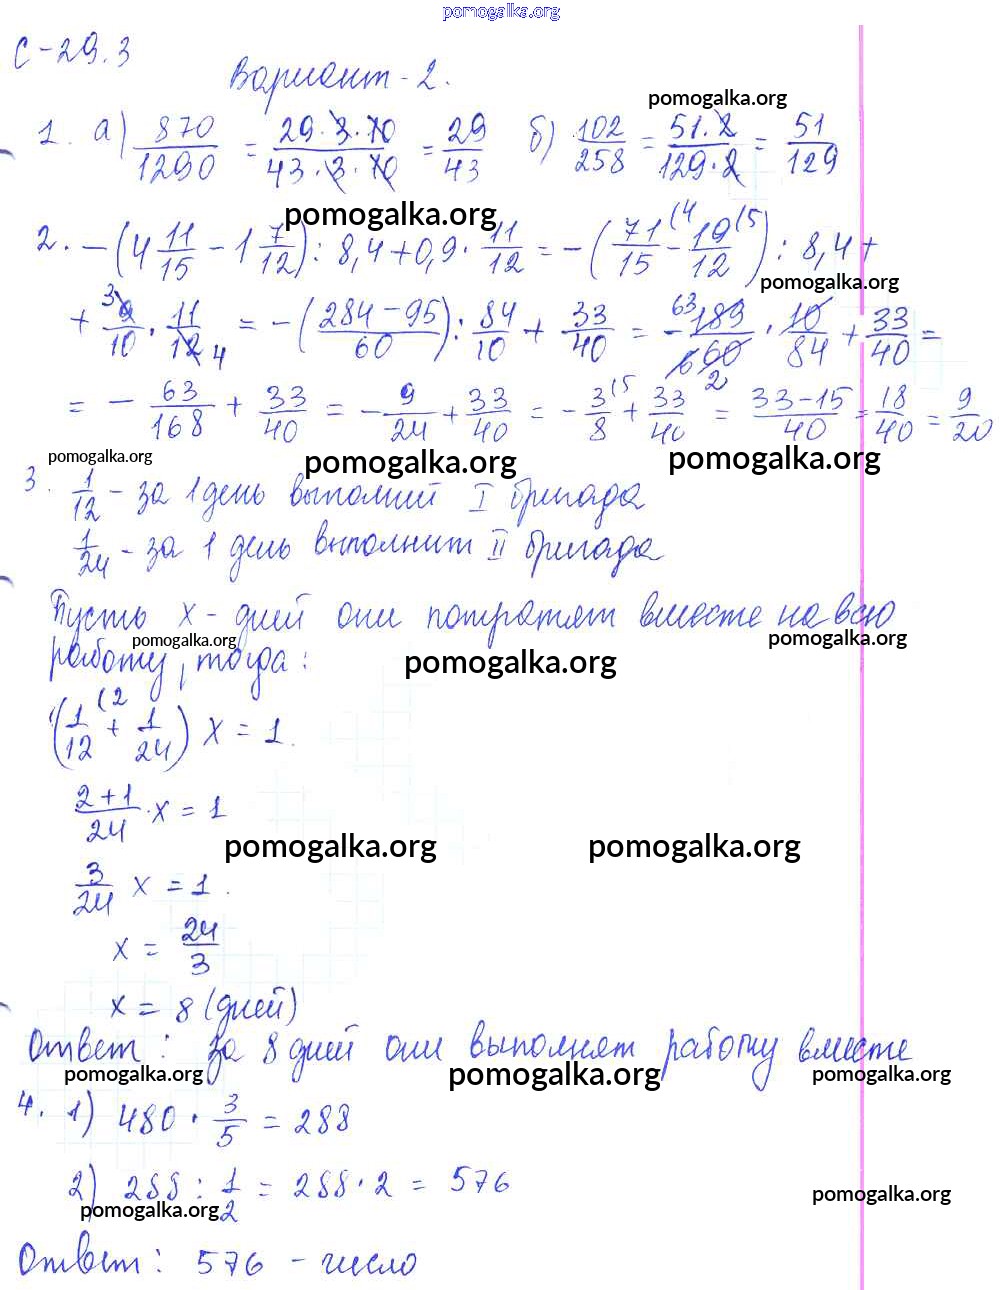 pomogalka.org
С-29.3
Вариант-2.
pomogalka.org
1. а) 870/1290 = 29·3·10/43·3·10 = 29/43 б) 102/258 = 51·2/129·2 = 51/129
pomogalka.org
2. -(4 11/15 - 1 7/12) : 8,4 + 0,9 · 11/12 = -(71/15 (4 - 19/12 (5) : 8,4 +
pomogalka.org
+ 3 9/10 · 11/12 4 = -(284-95/60) : 84/10 + 33/40 = - 63 189/6 60 · 10/84 + 33/40 =
= - 63/168 + 33/40 = - 9/24 + 33/40 = - 3/8 (5 + 33/40 2 = 33-15/40 = 18/40 = 9/20
pomogalka.org pomogalka.org pomogalka.org
3. 1/12 - за 1 день выполнит I бригада
1/24 - за 1 день выполнит II бригада
Пусть х - дней они потратят вместе на всю
pomogalka.org pomogalka.org
работу, тогда:
pomogalka.org
(1/12 (2 + 1/24) х = 1.
2+1/24 · х = 1
pomogalka.org pomogalka.org
3/24 х = 1.
х = 24/3
х = 8 (дней)
Ответ: за 8 дней они выполнят работу вместе
pomogalka.org pomogalka.org pomogalka.org
4. 1) 480 · 3/5 = 288
2) 288 : 1/2 = 288 · 2 = 576
pomogalka.org pomogalka.org
Ответ: 576 - число